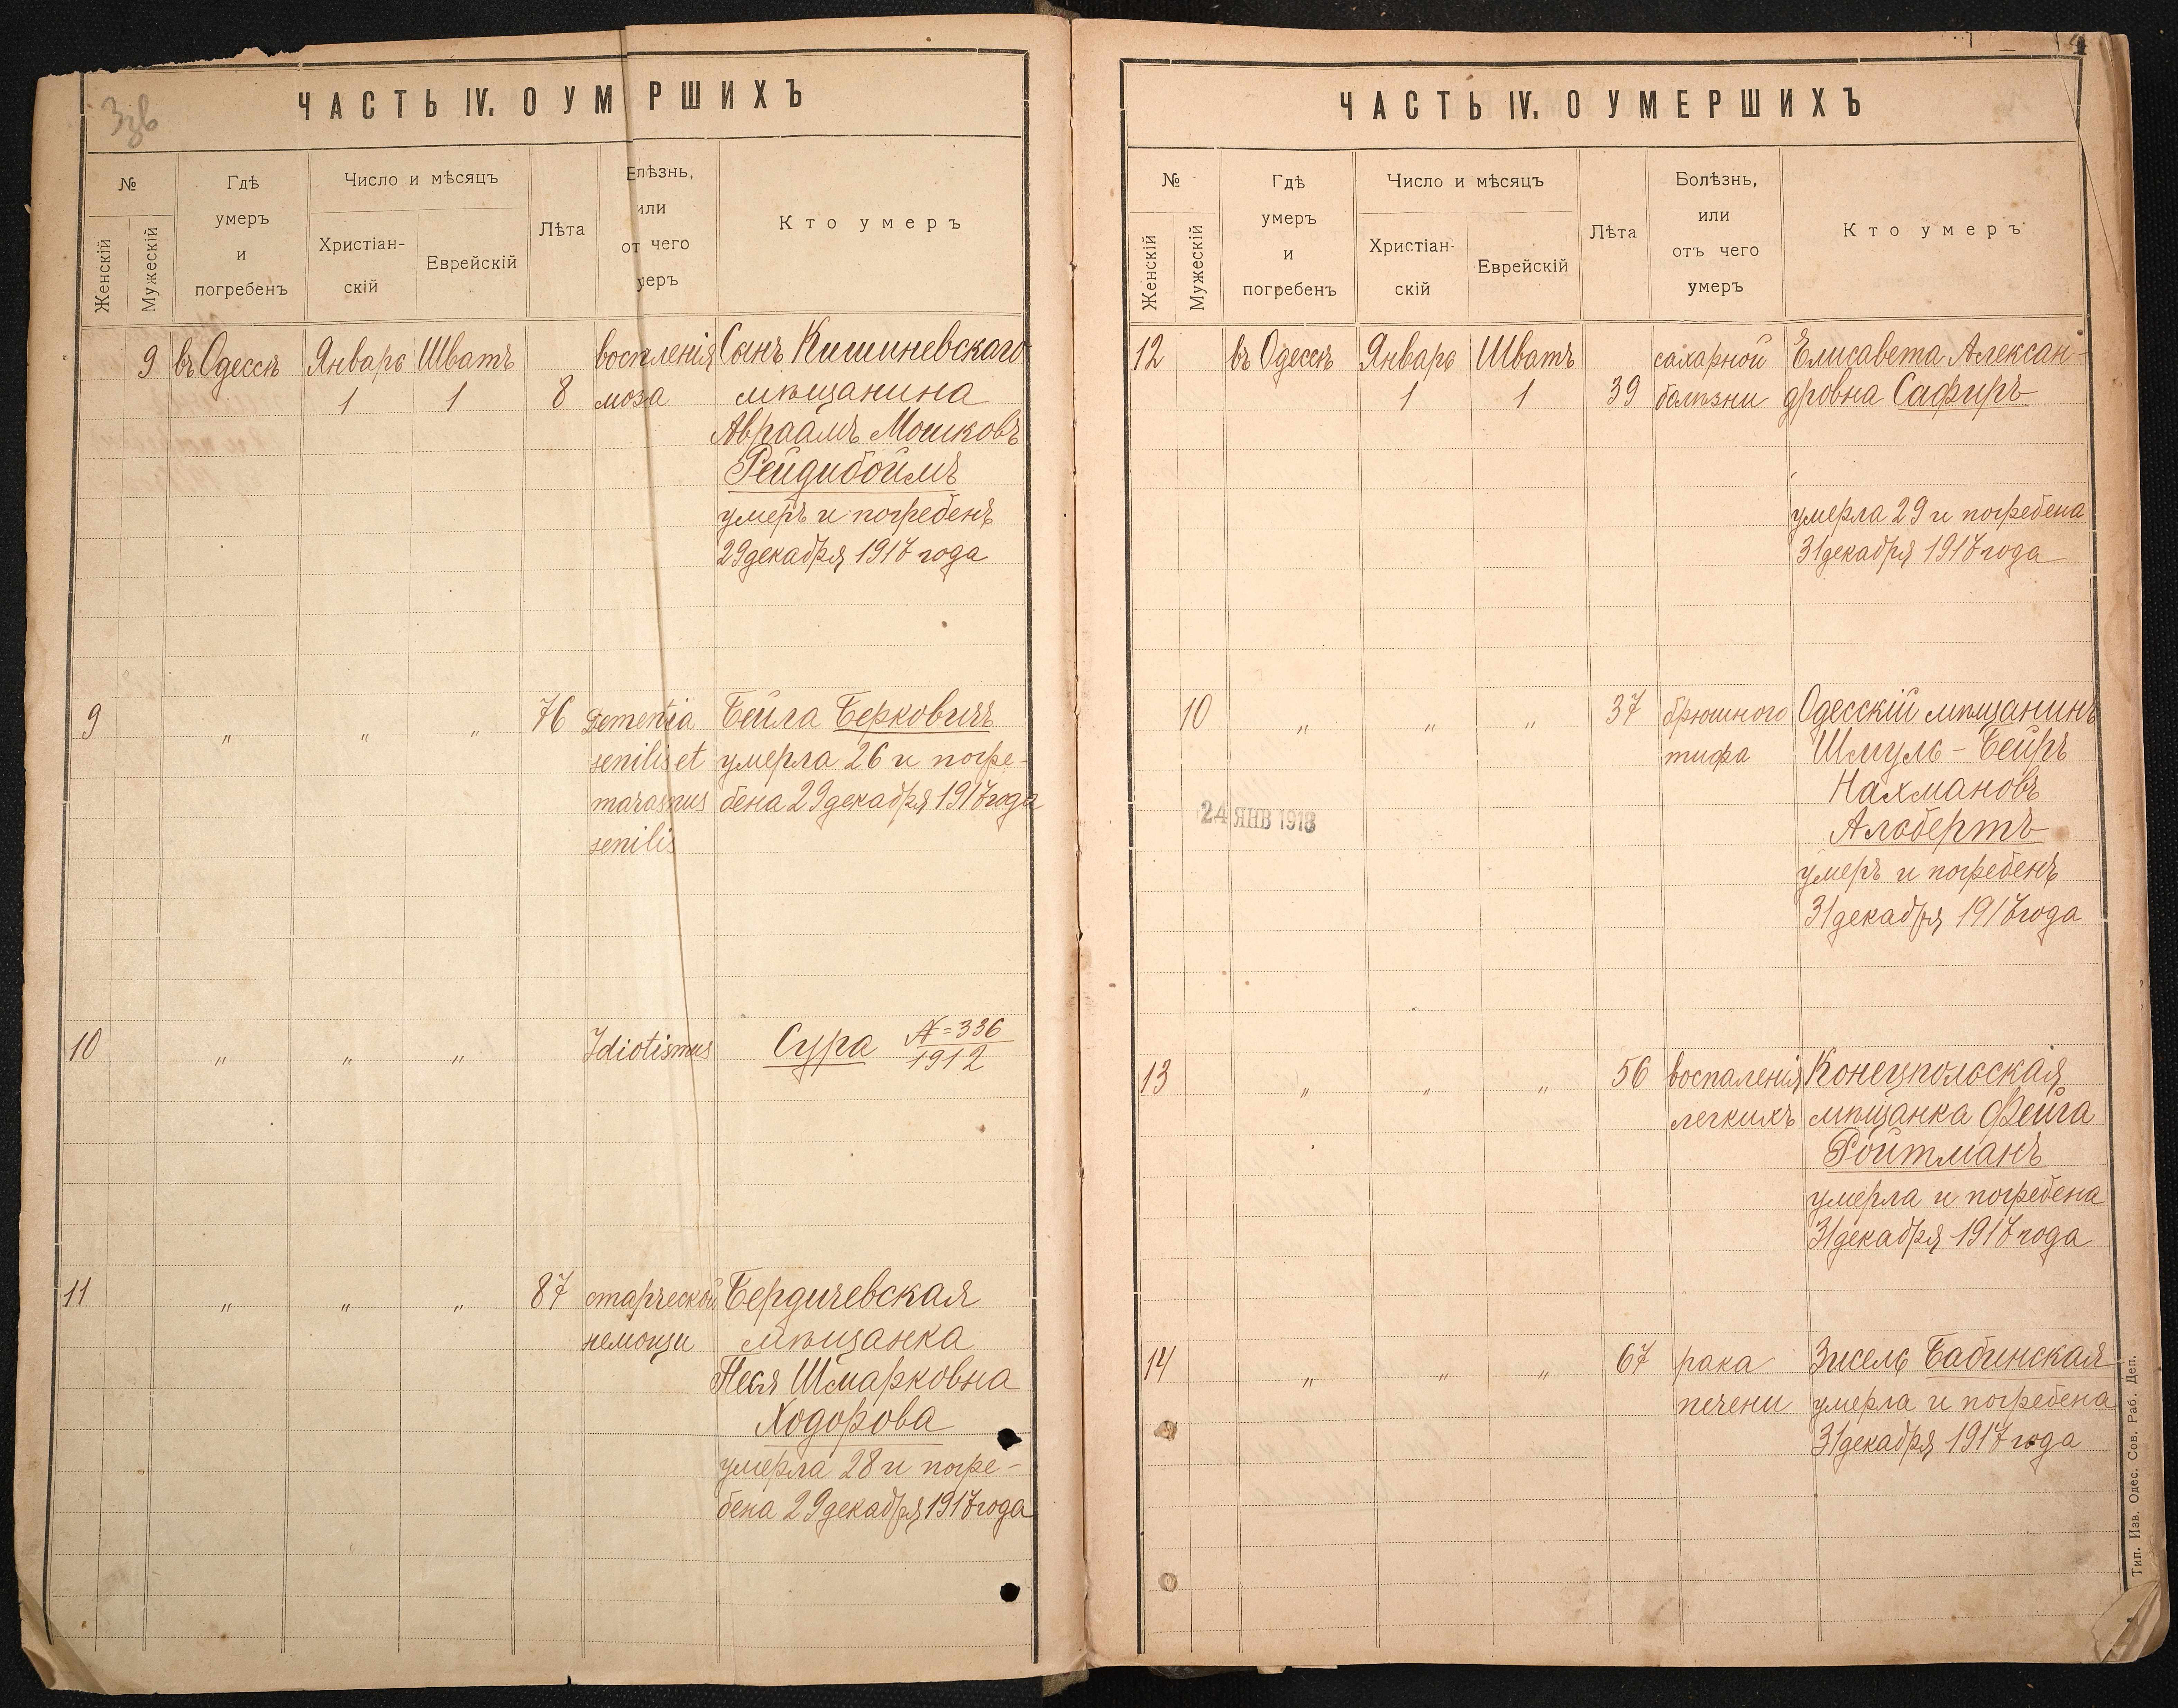 Ззв
ЧАСТЬ IV. О УМ РШИХЪ
№
Женскій
Мужескій
Гдѣ
умеръ
и
погребенъ
Число и мѣсяцъ
Христіан-
скій
Еврейскій
Лѣта
Елѣзнь,
или
от чего
меръ
Кто умеръ
9 въ Одессѣ Январь Шватъ воспаленія Сынъ Кишиневскаго
1 1 8 моза мѣщанина
Авраамъ Мошковъ
Рейдибоймъ
умеръ и погребенъ
29 декабря 1917 года
9 " " " 76 Dementia Бейла Берковичъ
senilis et умерла 26 и погре-
marasmus бена 29 декабря 1917 года
senilis
10 " " " Idiotismus Сура N=336
1912
11 " " " 87 старческой Бердичевская
немощи мѣщанка
Песя Шмарковна
Ходорова
умерла 28 и погре-
бена 29 декабря 1917 года
ЧАСТЬ IV. О УМЕРШИХЪ
№
Женскій
Мужескій
Гдѣ
умеръ
и
погребенъ
Число и мѣсяцъ
Христіан-
скій
Еврейскій
Лѣта
Болѣзнь,
или
отъ чего
умеръ
Кто умеръ
12 въ Одессѣ Январь Шватъ сахарной Елисавета Алексан-
1 1 39 болѣзни дровна Сафиръ
умерла 29 и погребена
31 декабря 1917 года
10 " " " 37 брюшного Одесскій мѣщанинъ
тифа Шмуль-Бейръ
Нахмановъ
24 ЯНВ 1918
Альбертъ
умеръ и погребенъ
31 декабря 1917 года
13 " " " 56 воспаленія Конецпольская
легкихъ мѣщанка Фейга
Ройтманъ
умерла и погребена
31 декабря 1917 года
14 " " " 67 рака Зисель Бабинская
печени умерла и погребена
31 декабря 1917 года
Тип. Изв. Одес. Сов. Раб. Деп.